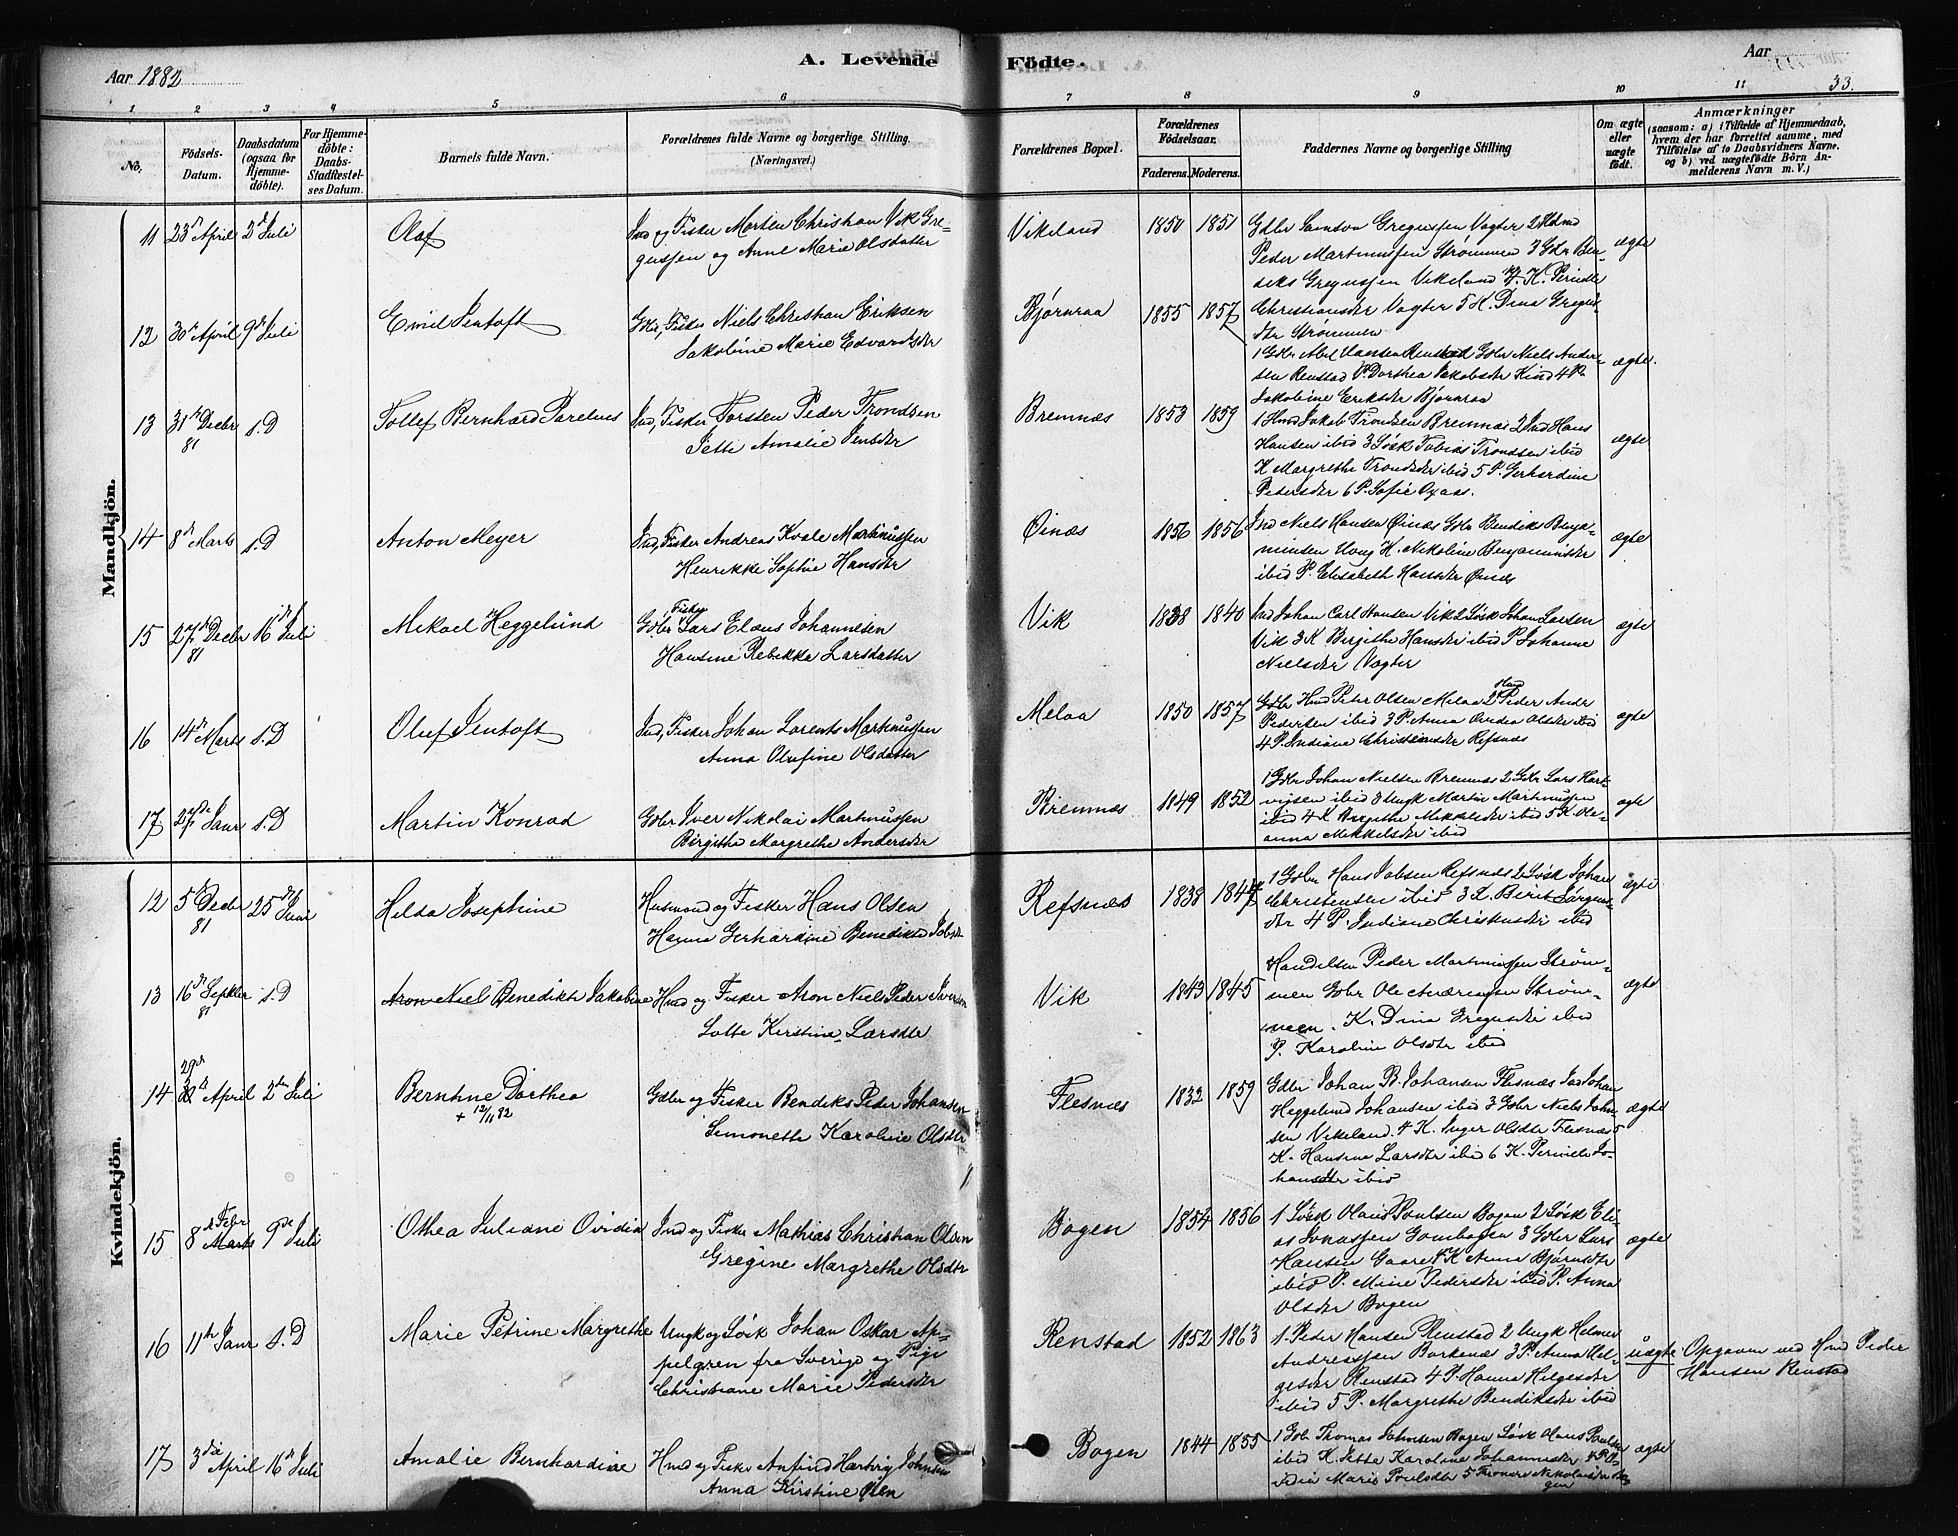 Aar 1882
A. Levende
Fødte.
Aar
33.
1 2 3 4 5 6 7 8 9 10 11
No.
Fødsels-Datum.
Daabsdatum (ogsaa for Hjemme-døbte).
For Hjemme-døbte: Daabs-Stadfæstel-ses Datum.
Barnets fulde Navn.
Forældrenes fulde Navne og borgerlige Stilling. (Næringsvei.)
Forældrenes Bopæl.
Forældrenes Fødselsaar.
Faderens. Moderens.
Faddernes Navne og borgerlige Stilling
Om ægte eller uægte født.
Anmærkninger
(saasom: a) i Tilfælde af Hjemmedaab, hvem der har forrettet samme, med Tilføielse af to Daabsvidners Navne, og b) ved uægtefødte Børn An-melderens Navn m. V.)
Mandkjön.
11 23de April 2de Juli Olaf
Ind og Fisker Morten Christian Vik Gre-
gussen og Anne Marie Olsdatter
Vikeland 1850 1851
Gdbr Samson Gregussen Vagter 2 Hdmd
Peder Martinussen Strømmen 3 Gdbr Ben-
diks Gregussen Vikeland 4 K. Pernille
Christiansdr Vagter 5 K. Dina Gregus
dtr Strømmen
ægte
12 30te April 9de Juli Emil Jentoft
Gbr, Fisker Niels Christian Eriksen
Jakobine Marie Edvardsdr
Bjørnraa 1855 1857
1 Gdbr Abel Hansen Renstad Gdbr Niels Ander-
sen Renstad P Dorthea Jakobsdr Kind 4 P.
Jakobine Eriksdr Bjørnraa
ægte.
13 31te Decbr 81 s.D Tollef Bernhard Parelius
Ind, Fisker Torsten Peder Trondsen
Jette Amalie Jensdr
Bremnæs 1853 1859
1 Hmd Jakob Trondsen Bremnæs 2 Ind Hans
Hansen ibid 3 Løsk Tobias Trondsen ibid
K Margrethe Trondsdr ibid 5 P. Gerhardine
Pedersdr 6 P. Sofie Oxaas.
ægte
14 8de Marts s.D Anton Meyer
Ind, Fisker Andreas Kvale Martinussen
Henrikke Sophie Hansdr
Øinæs 1856 1856
Ind Niels Hansen Øinæs Gdbr Bendiks Benja-
minsen Uvaag K. Nikoline Benjaminsdr
ibid P. Elisabeth Hansdr Øinæs
ægte
15 27de Decbr 81 16de Juli Mikael Heggelund
Gdbr Fisker Lars Elaus Johannesen
Hansine Rebekka Larsdatter
Vik 1838 1840
Ind Johan Carl Hansen Vik 2 Løsk Johan Larsen
Vik 3 K Birgithe Hansdr ibid P Johanne
Nielsdr Vagter
ægte
16 14de Marts s.D Oluf Jentoft
Ind, Fisker Johan Lorents Martinussen
Anna Olufine Olsdatter
Melaa 1850 1857
Gdbr Hmd Peter Olsen Melaa 2 Hmd Peder Andr
Pedersen ibid 3 P. Anna Ovidia Olsdr ibid
4 P. Indiane Christensdr Refsnæs
ægte
17 27de Janr s.D Martin Konrad
Gdbr Iver Nikolai Martinussen
Birgithe Margrethe Andersdr
Bremnæs 1849 1852
1 Gdbr Johan Nielsen Bremnæs 2 Gdbr Lars Hart-
vigsen ibid 3 Ungk Martin Martinussen
ibid 4 K Birgithe Mikkelsdr ibid 5 K Ole-
anna Mikkelsdr ibid
ægte
Kvindekjön.
12 5te Decbr 81 25de Juni Hilda Josephine
Husmand og Fisker Hans Olsen
Hanna Gerhardine Benedikte Jobsdr
Refsnæs 1838 1847
1 Gdbr Hans Jobsen Refsnæs 2 Løsk Johan
Christensen ibid 3 K. Berit Jørgens
dtr 4 P. Indiane Christensdr ibid
ægte
13 16de Septbr 81 s.D Aron Niel Benedikte Jakobine
Hmd og Fisker Aron Niels Peder Iversen
Lotte Kirstine Larsdtr
Vik 1843 1845
Handelsm Peder Martinussen Strøm-
men Gdbr Ole Andreas Strøm-
meen. K. Dina Gregusdr ibid
P. Karoline Olsdtr ibid
ægte
14 29de April 2den Juli Berntine Dorthea
+ 12/11 82
Gdbr og Fisker Bendiks Peder Johansen
Simonette Karoline Olsdtr
Flesnæs 1832 1859
Gdbr Johan B. Johansen Flesnæs Ind Johan
Heggelund Johansen ibid 3 Gdbr Niels John-
sen Vikeland. 4 K. Inger Olsdtr Flesnæs 5
K. Hansine Larsdtr ibid 6 K. Pernille Jo-
hansdtr ibid
ægte
15 8de Febr Marts 9de Juli Othea Juliane Ovidia
Ind og Fisker Mathias Christian Olsen
Gregine Margrethe Olsdtr
Bogen 1854 1856
1 Løsk Olaus Poulsen Bogen 2 Løsk Eli-
as Jonassen Gambogen 3 Gdbr Lars
Hansen Gaare 4 K Anna Bjørnsdtr
ibid P. Mine Pedersdr ibid P. Anna
Olsdtr Bogen
ægte
16 11te Janr s.D Marie Petrine Margrethe
Ungk og Løsk Johan Oskar Ap-
pelgren fra Sverige og Pige
Christiane Marie Pedersdr
Renstad 1852 1863
1. Peder Hansen Renstad 2 Ungk Helmer
Andreassen Borkenæs 3 P. Anna Hel-
gesdr Renstad 4 P. Hanna Helgesdr
ibid 5 P. Margrethe Bendiksdr ibid
uægte
Opgaven ved Hmd Peder
Hansen Renstad
17 3die April 16de Juli Amalie Bernhardine
Hmd og Fisker Anfind Hartvig Johnsen
Anna Kirstine Olsen
Bogen 1844 1855
1 Gdbr Thomas Johnsen Bogen Løsk Olaus Poulsen
ibid K. Jette Karoline Johannesdr 4 P. O-
vidia Marie Poulsdtr
ægte